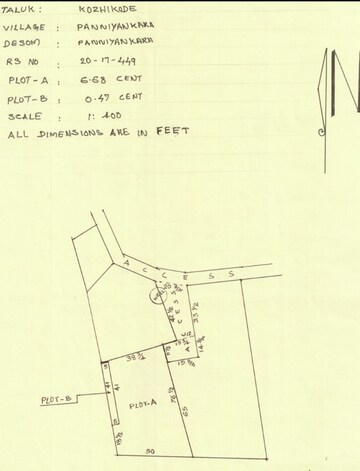 TALUK : KOZHIKODE
VILLAGE : PANNIYANKARA
DESOM : PANNIYANKARA
RS NO : 20-17-449
PLOT-A : 6.68 CENT
PLOT-B : 0.47 CENT
SCALE : 1:400
ALL DIMENSIONS ARE IN FEET
N
ACCESS
ACCESS
WELL
33 1/2
39 3/4
14 3/4
PLOT-B
PLOT-A
41
78 1/2
65
18 1/2
50